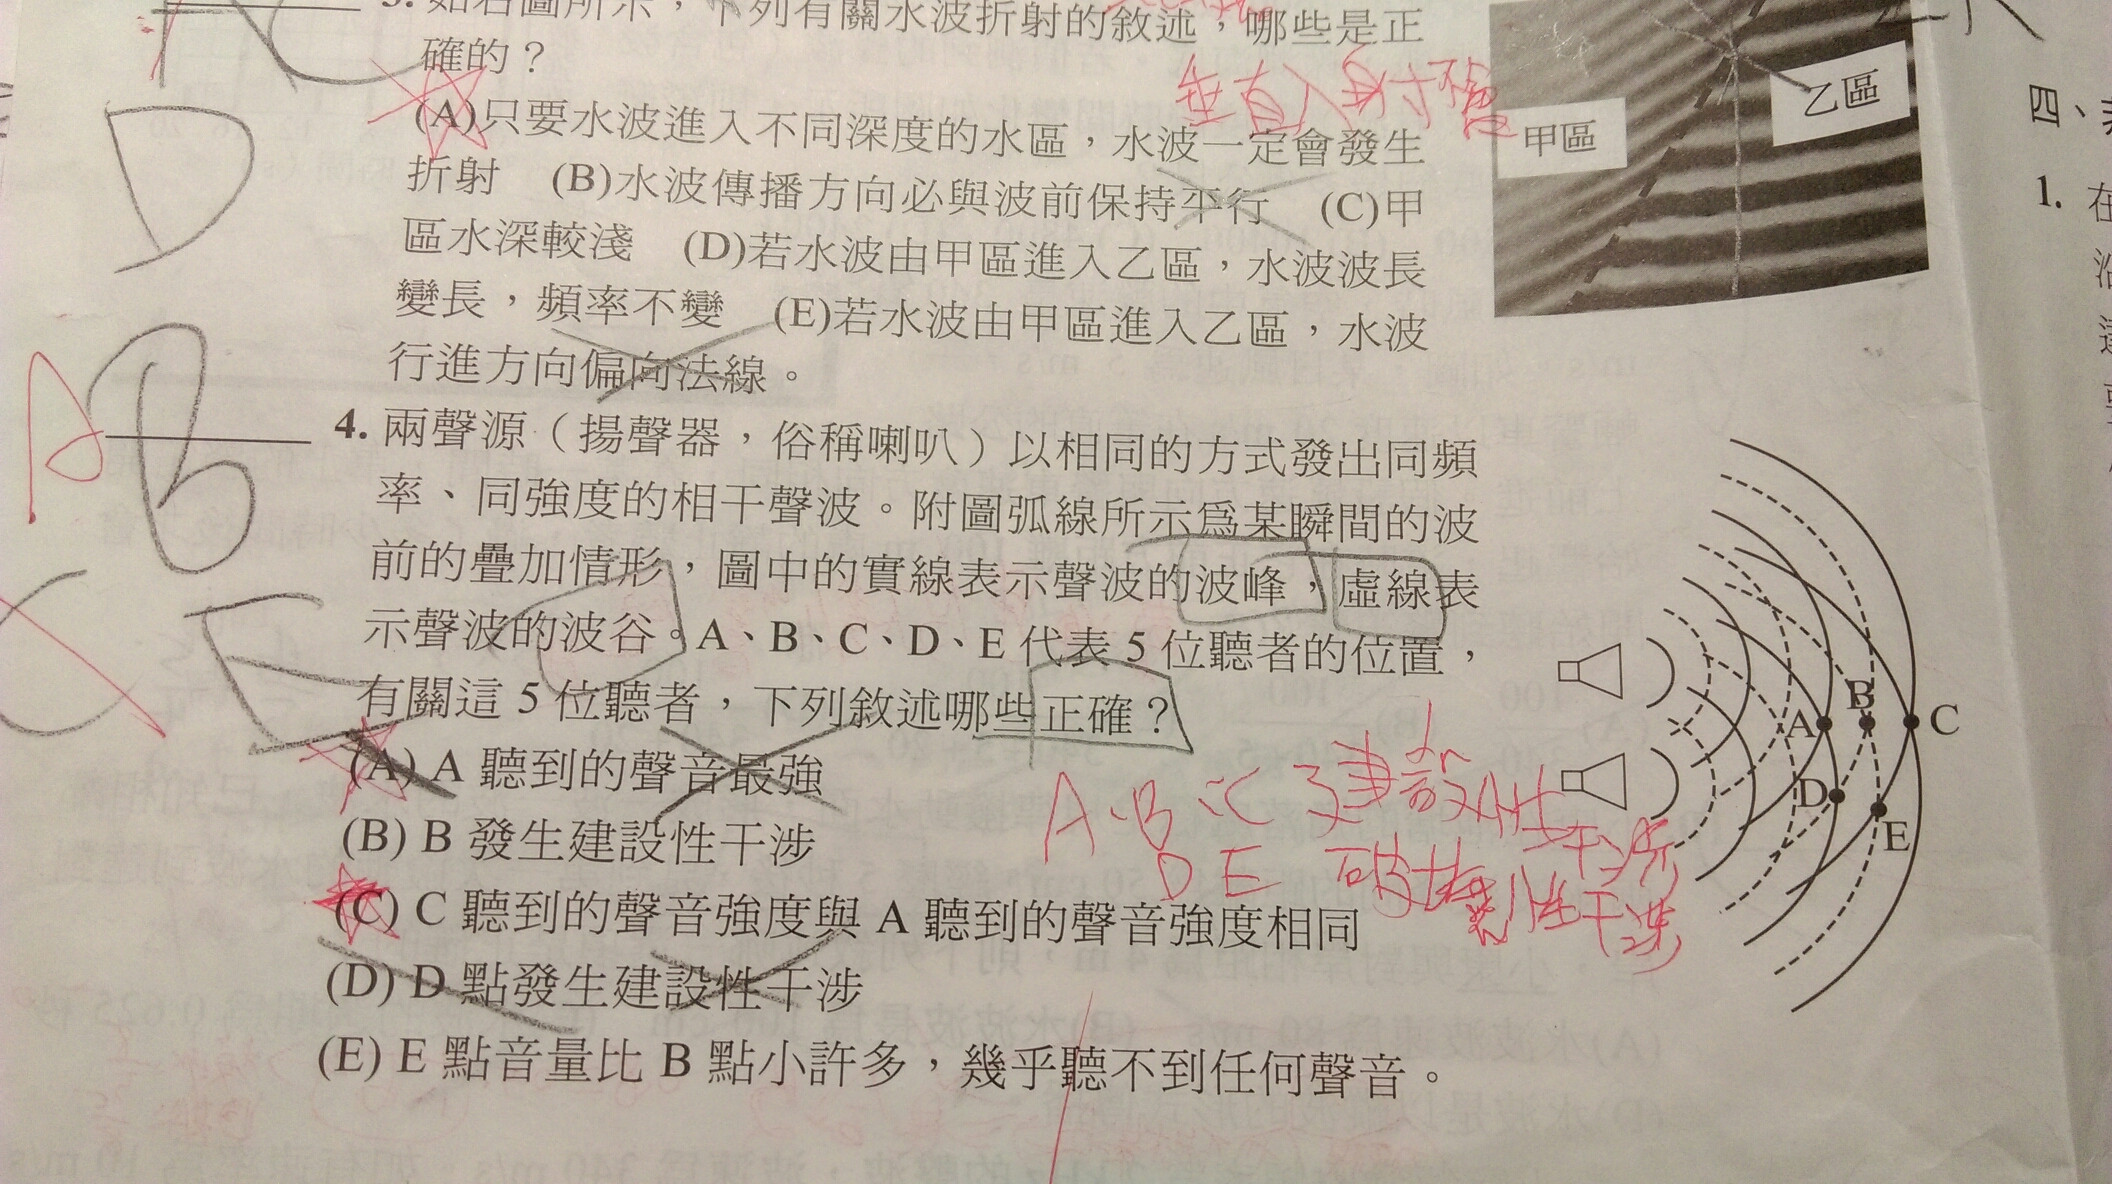 3. 如右圖所示，下列有關水波折射的敘述，哪些是正
確的？
垂直入射不會
(A)只要水波進入不同深度的水區，水波一定會發生
折射 (B)水波傳播方向必與波前保持平行 (C)甲
區水深較淺 (D)若水波由甲區進入乙區，水波波長
變長，頻率不變 (E)若水波由甲區進入乙區，水波
行進方向偏向法線。
甲區
乙區
D
4. 兩聲源（揚聲器，俗稱喇叭）以相同的方式發出同頻
率、同強度的相干聲波。附圖弧線所示為某瞬間的波
前的疊加情形，圖中的實線表示聲波的波峰，虛線表
示聲波的波谷。A、B、C、D、E 代表 5 位聽者的位置，
有關這 5 位聽者，下列敘述哪些正確？
(A) A 聽到的聲音最強
(B) B 發生建設性干涉
(C) C 聽到的聲音強度與 A 聽到的聲音強度相同
(D) D 點發生建設性干涉
(E) E 點音量比 B 點小許多，幾乎聽不到任何聲音。
A
B
C
E
A B C 建設性干涉
D E 破壞性干涉
A
B
C
D
E
四、
1. 在